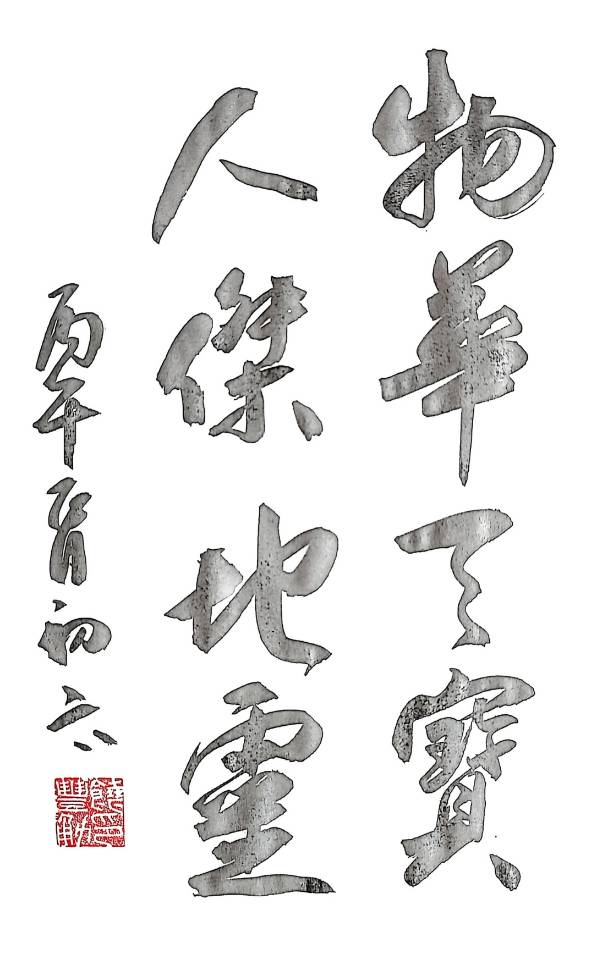 物華天寶
人傑地靈
丙午月初六